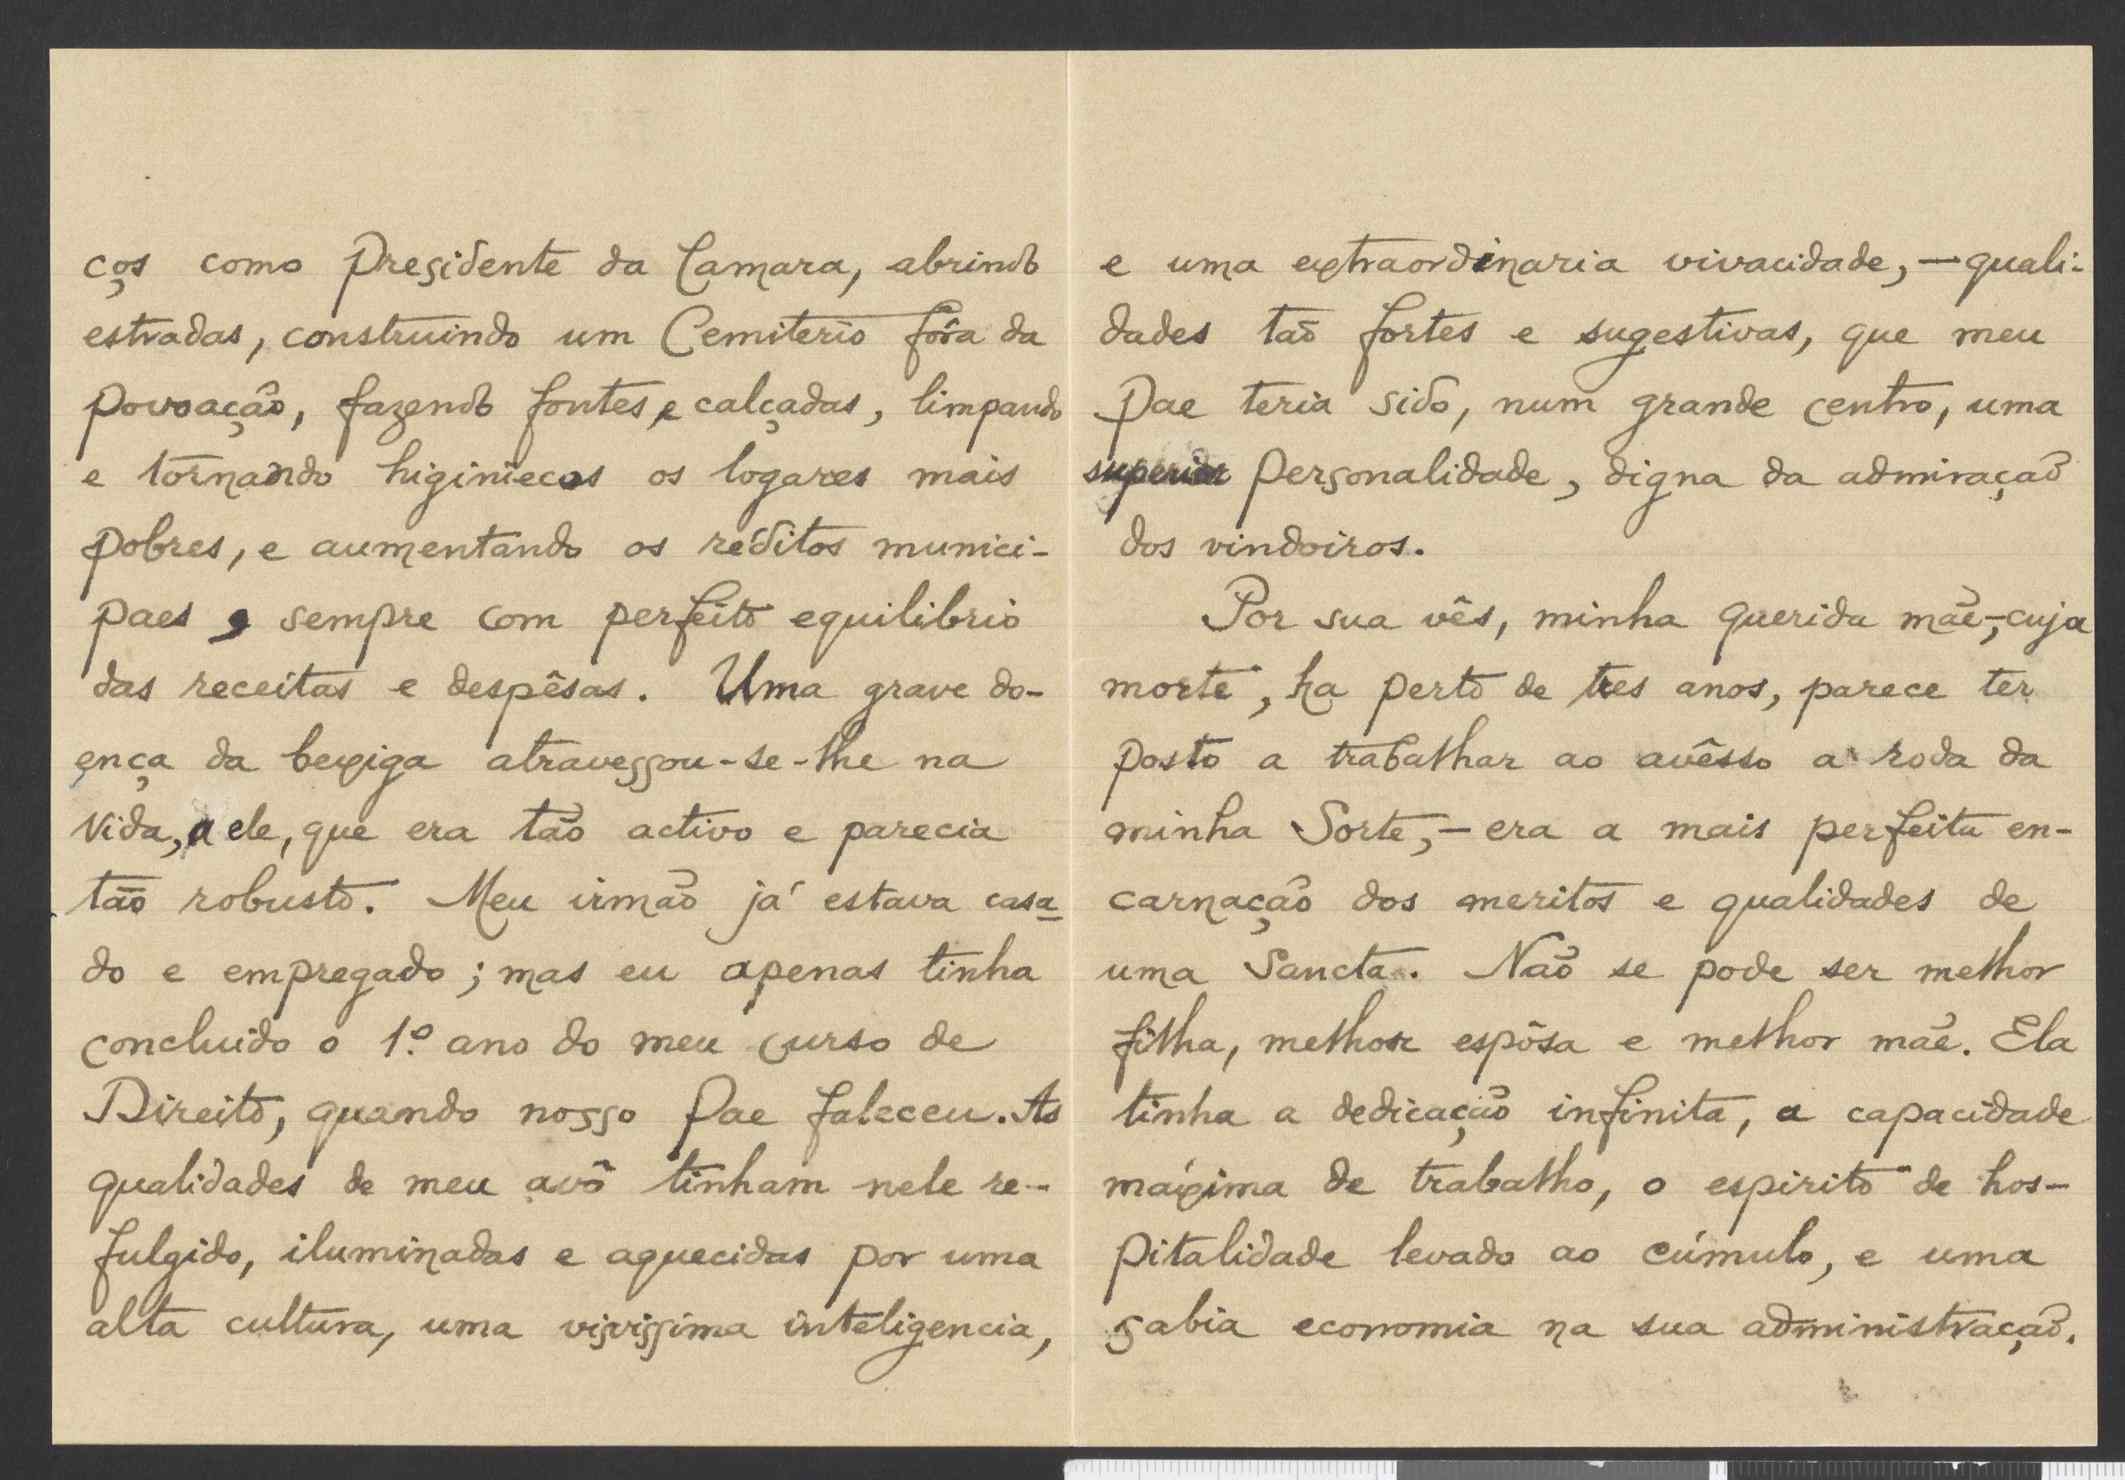 ços como Presidente da Camara, abrindo
estradas, construindo um Cemiterio fóra da
povoação, fazendo fontes e calçadas, limpando
e tornando higiniecos os logares mais
pobres, e aumentando os réditos munici-
paes, sempre com perfeito equilibrio
das receitas e despêsas. Uma grave do-
ença da bexiga atravessou-se-lhe na
vida, a ele, que era tão activo e parecia
tão robusto. Meu irmão já estava casa-
do e empregado; mas eu apenas tinha
concluido o 1º ano do meu curso de
Direito, quando nosso Pae faleceu. As
qualidades de meu avô tinham nele re-
fulgido, iluminadas e aquecidas por uma
alta cultura, uma vivissima inteligencia,
e uma extraordinaria vivacidade, — quali-
dades tão fortes e sugestivas, que meu
Pae teria sido, num grande centro, uma
superior personalidade, digna da admiração
dos vindoiros.
Por sua vês, minha querida mãe, — cuja
morte, ha perto de tres anos, parece ter
posto a trabalhar ao avêsso a roda da
minha Sorte, — era a mais perfeita en-
carnação dos meritos e qualidades de
uma Sancta. Não se pode ser melhor
filha, melhor espôsa e melhor mãe. Ela
tinha a dedicação infinita, a capacidade
máxima de trabalho, o espirito de hos-
pitalidade levado ao cúmulo, e uma
sabia economia na sua administração.